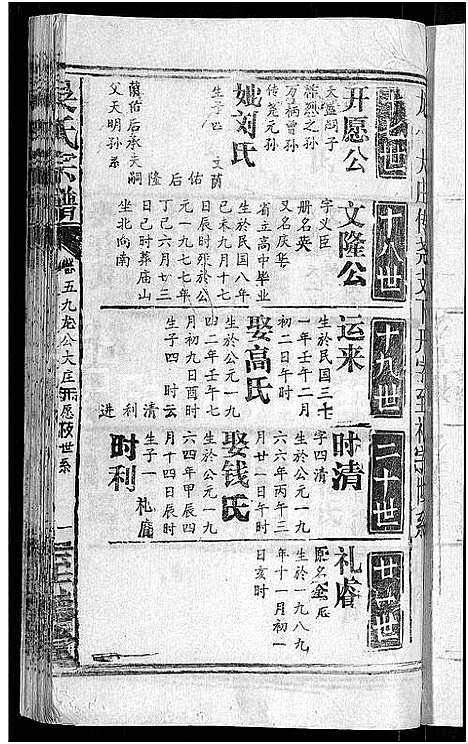 十八世
十九世
二十世
廿一世
开愿公
天盛嗣子
传尧元孙
妣刘氏
生子四
文荫
佑
后
隆
荫佑后承天嗣
父天明孙系
文隆公
字义臣
册名英
又名庆华
省立高中毕业
生於民国八年
己未九月十七
日辰时殁於公
元一九七七年
丁己六月廿三
日己时葬庙山
坐北向南
运来
生於民国三十
一年壬午二月
初二日午时
娶高氏
生於公元一九
四二年壬午七
月初九日酉时
生子四
时云
清
利
进
时清
字四清
生於公元一九
六六年丙午三
月廿一日午时
娶钱氏
生於公元一九
六四年甲辰四
月十四日辰时
生子一
礼
时利
礼睿
生於一九八九
年十一月初一
日亥时
吴氏宗谱
卷五九龙公大庄开愿枝世系
一